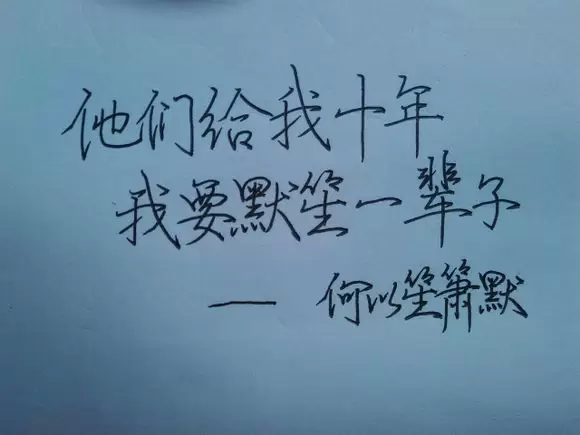 他们给我十年
我要默笙一辈子
—— 何以笙箫默